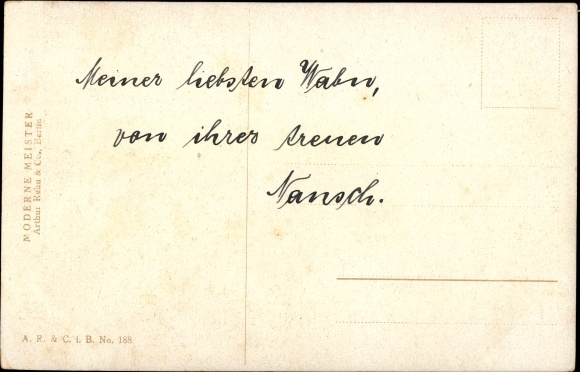 Meiner liebsten Wabn,
von ihrer treuen
Nansch.
MODERNE MEISTER
Arthur Rehn & Co., Berlin
A. R. & C. i. B. No. 188